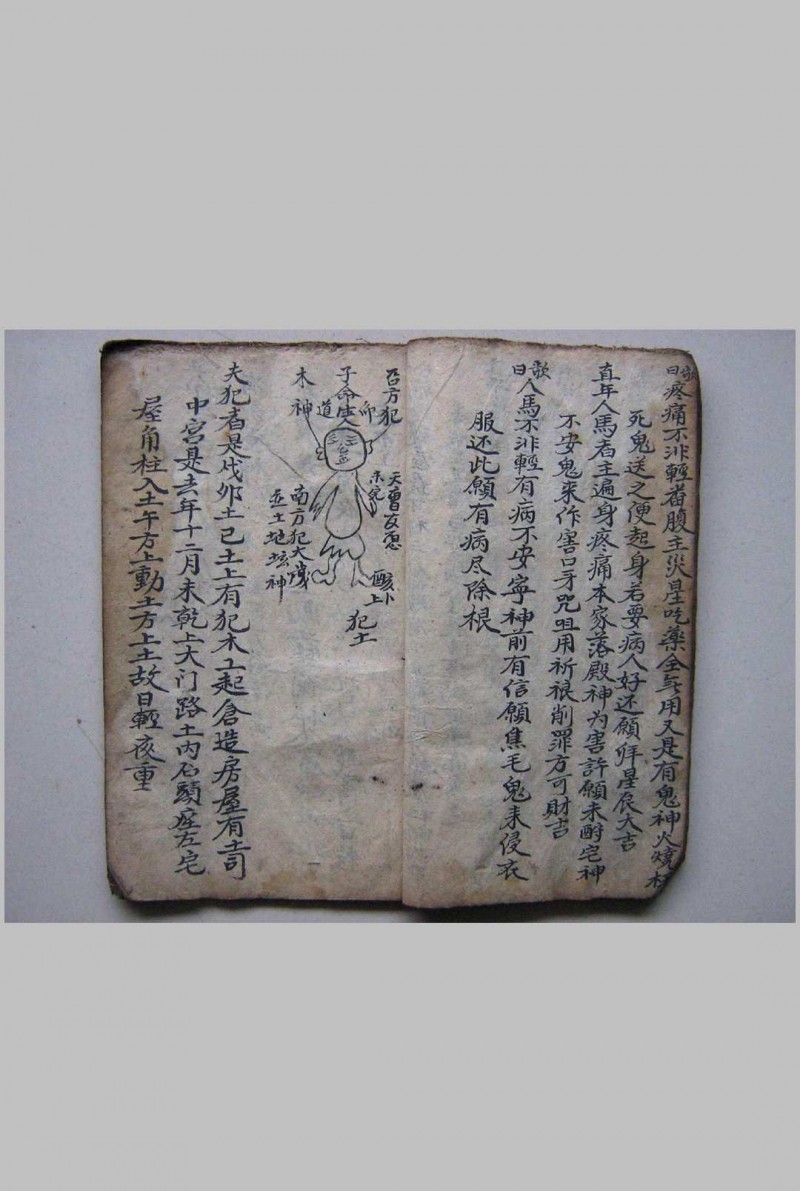 歌曰
疼痛不非輕着腹主災星吃藥全無用又是有鬼神火燒
死鬼送之便起身若要病人好还願拜星辰大吉
直年人馬者主遍身疼痛本家落殿神为害許願未酧宅神
不安鬼来作害口牙咒咀用祈禳削罪方可財吉
歌曰
人馬不非輕有病不安寧神前有信願焦毛鬼来侵衣
服还此願有病尽除根
方犯
子命生人
道
木神
天曹友
未完
南方犯大
並土地坛神
上卜
犯土
夫犯者是戊卯土已土上有犯木土起倉造房屋有土司
中宮是去年十二月未乾上大门路土内石頭在左宅
屋角柱入土午方上動土方上土故日輕夜重